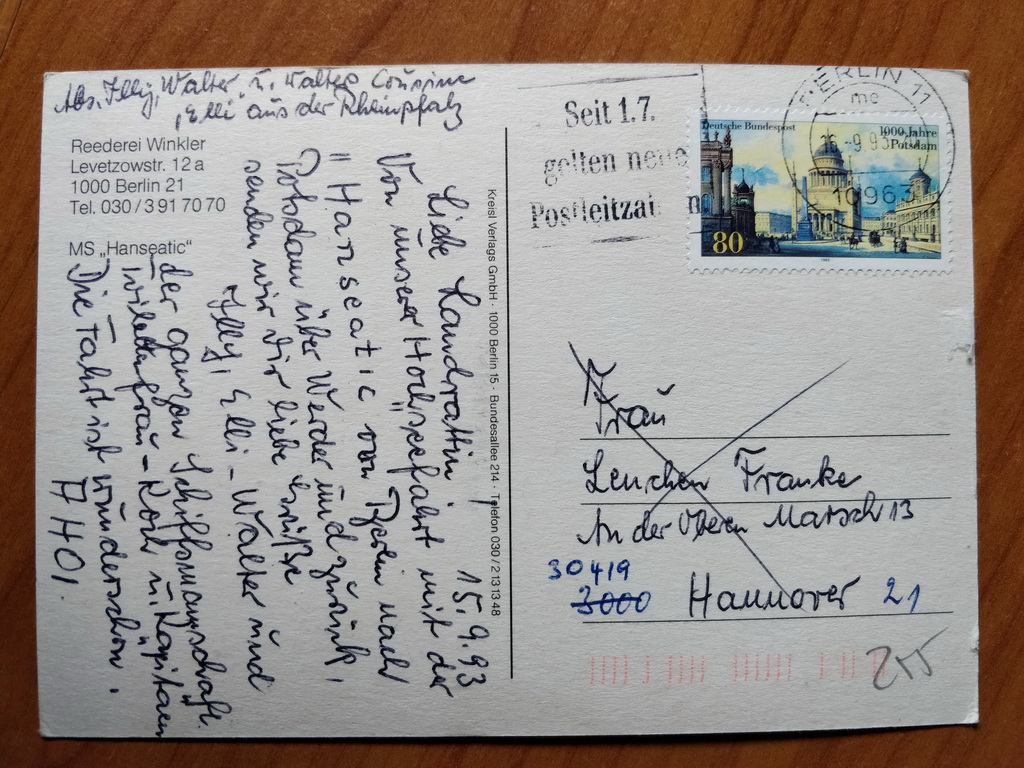 Abs. Illy, Walter u. Walters Cousine
"Elli" aus der Rheinpfalz
Reederei Winkler
Levetzowstr. 12 a
1000 Berlin 21
Tel. 030 / 3 91 70 70
MS „Hanseatic"
15.9.93
Liebe Landrattin!
Von unserer Hochseefahrt mit der
"Hanseatic" von Berlin nach
Potsdam über Werder und zurück,
senden wir Dir liebe Grüße
Illy, Elli - Walter und
der ganzen Schiffsmannschaft.
- Koch u. Kapitaen
Die Fahrt ist wunderschön.
AHOI
Kreisl Verlags GmbH · 1000 Berlin 15 · Bundesallee 214 · Telefon 030 / 213 13 48
Seit 1.7.
gelten neue
Postleitzahlen
BERLIN 11
me
-9.93
10963
Deutsche Bundespost
1000 Jahre
Potsdam
80
Frau
Lenchen Franke
An der Oberen Marsch 13
30419
3000 Hannover 21
255